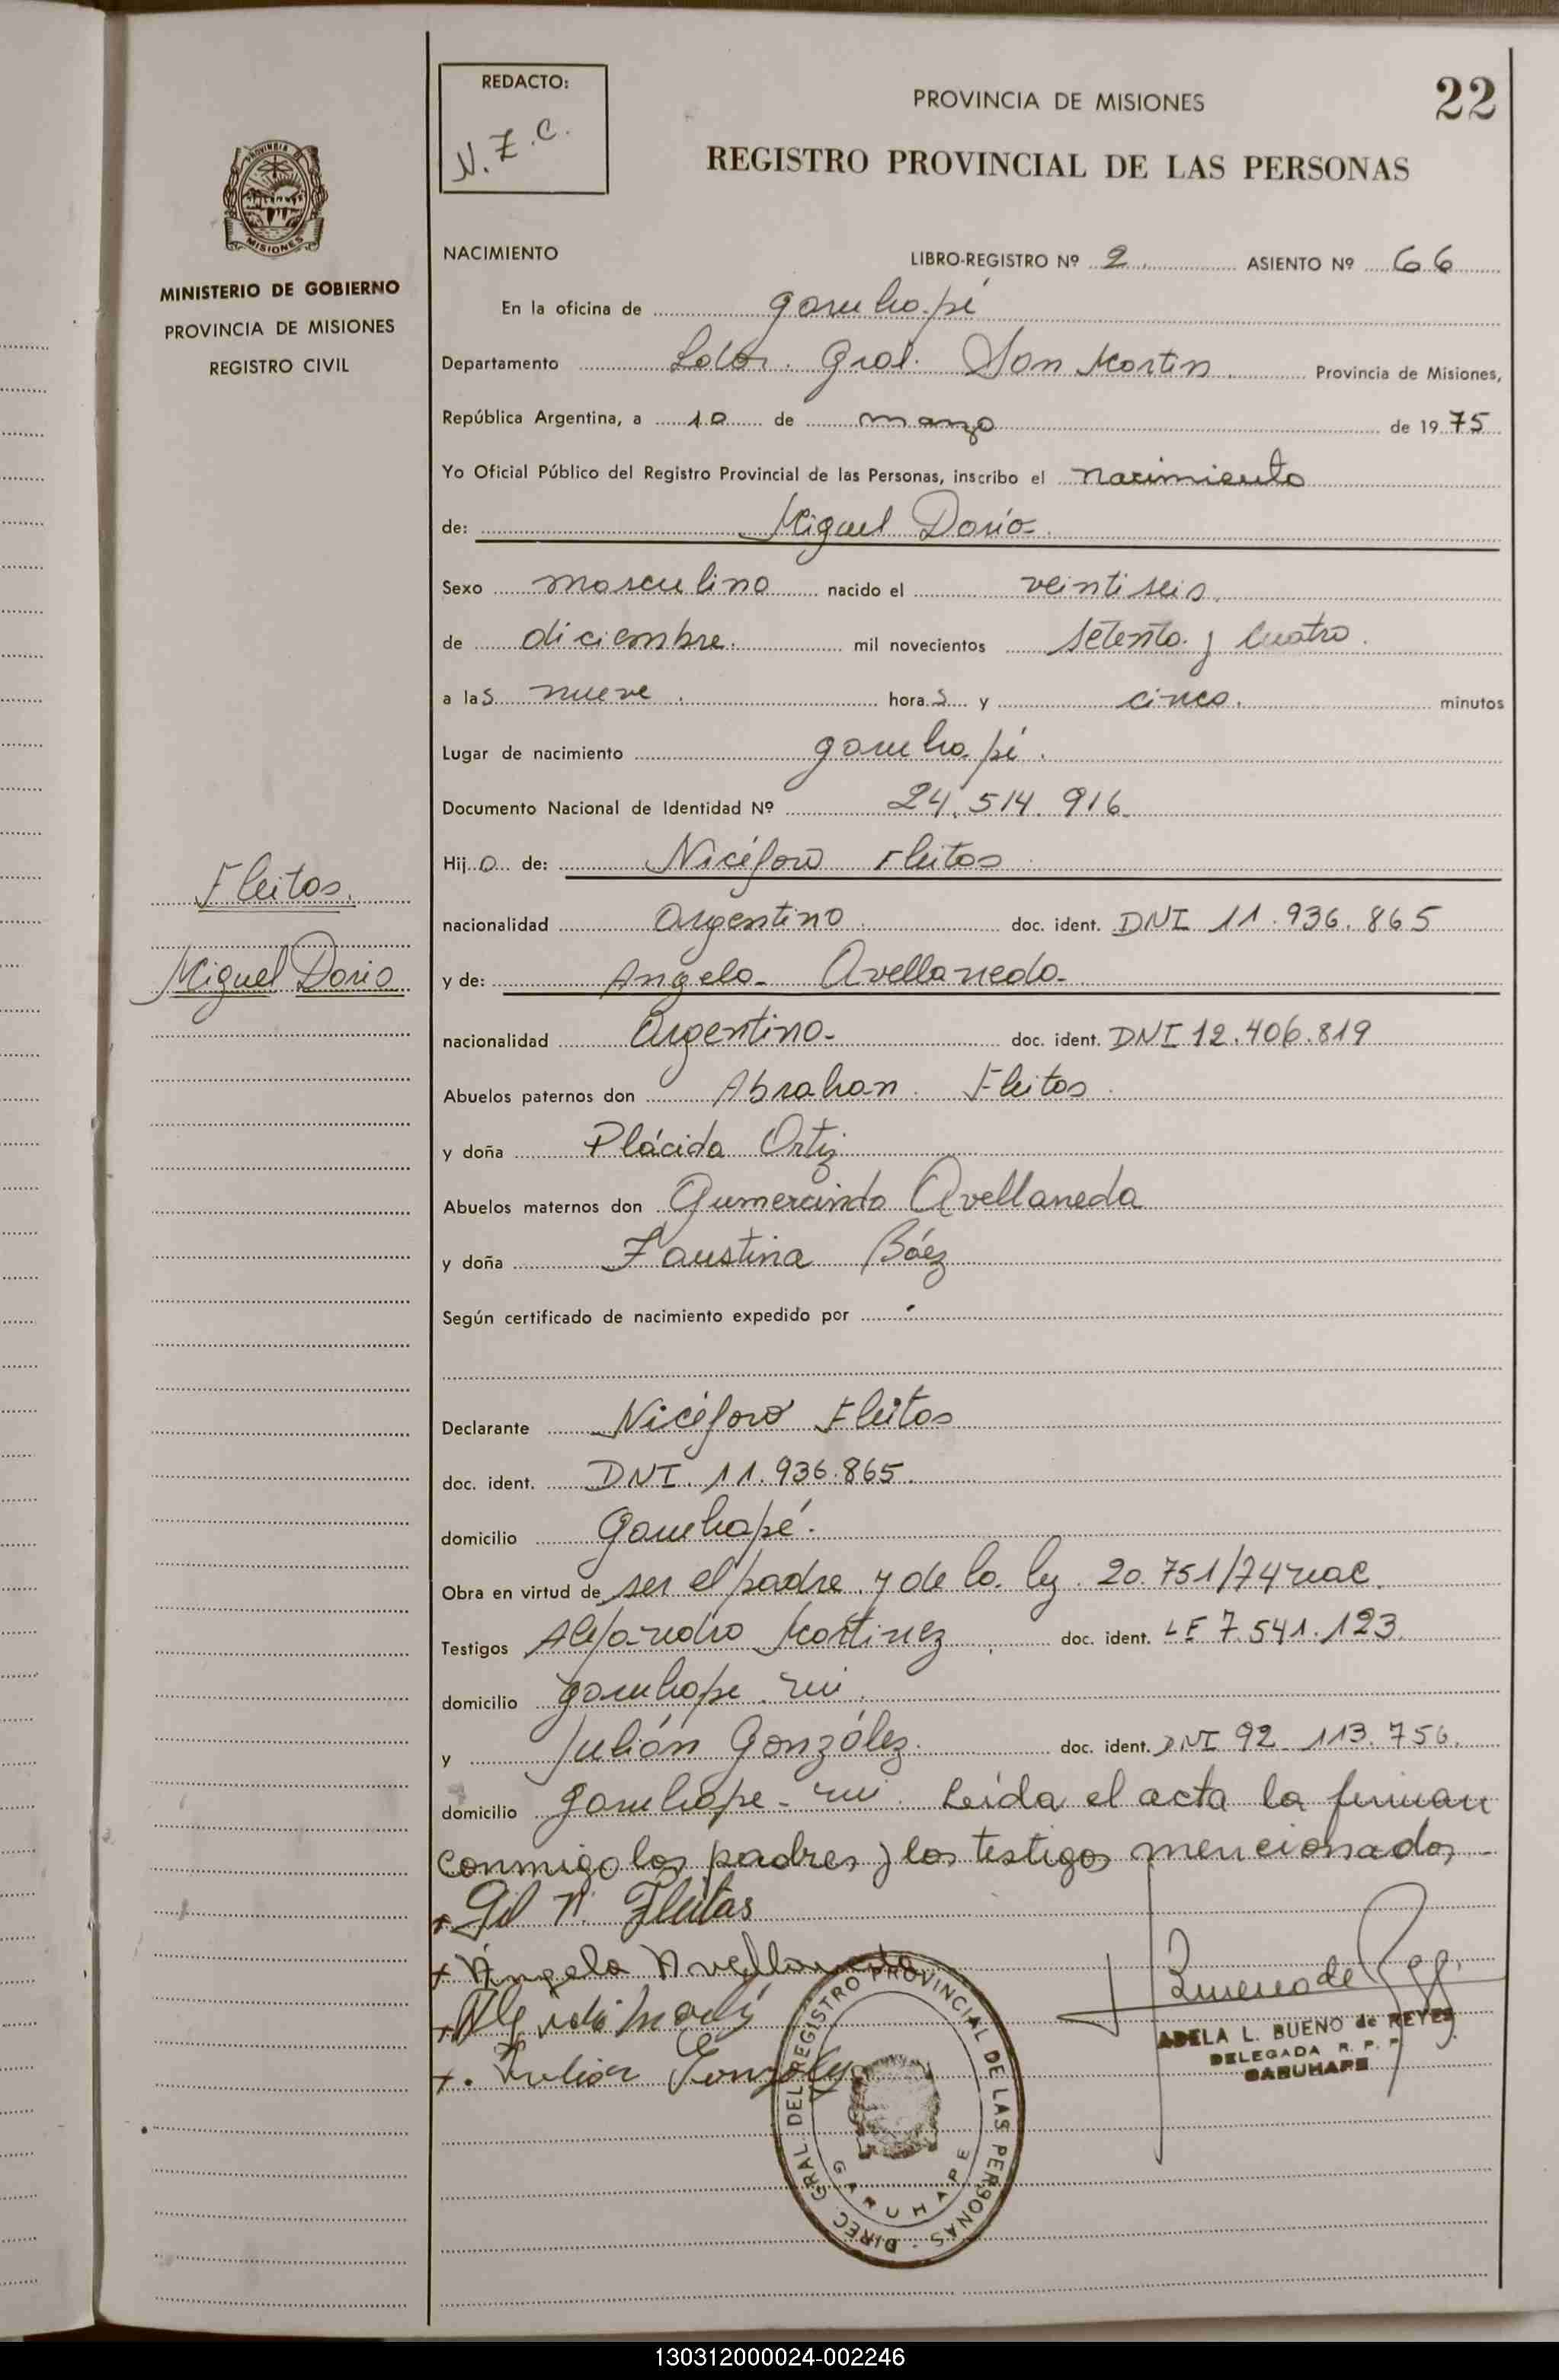 REDACTO:
N. Z. C.
PROVINCIA DE MISIONES
22
REGISTRO PROVINCIAL DE LAS PERSONAS
MISIONES
MINISTERIO DE GOBIERNO
PROVINCIA DE MISIONES
REGISTRO CIVIL
NACIMIENTO LIBRO-REGISTRO Nº 2 ASIENTO Nº 66
En la oficina de Garuhapé
Departamento Ldor. Gral. San Martin Provincia de Misiones,
República Argentina, a 10 de marzo de 1975
Yo Oficial Público del Registro Provincial de las Personas, inscribo el nacimiento
de: Miguel Dario
Sexo masculino nacido el veintiseis
de diciembre mil novecientos setenta y cuatro
a las nueve horas y cinco minutos
Lugar de nacimiento Garuhapé
Documento Nacional de Identidad Nº 24.514.916
Hijo de: Nicéforo Fleitas
nacionalidad Argentina doc. ident. DNI 11.936.865
y de: Angela Avellaneda
nacionalidad Argentina doc. ident. DNI 12.406.819
Abuelos paternos don Abrahan Fleitas
y doña Plácida Ortiz
Abuelos maternos don Gumercindo Avellaneda
y doña Faustina Báez
Según certificado de nacimiento expedido por
Fleitas
Miguel Dario
Declarante Nicéforo Fleitas
doc. ident. DNI 11.936.865
domicilio Garuhapé
Obra en virtud de ser el padre y de la ley 20.751/74 nac.
Testigos Alejandro Martinez doc. ident. LE 7.541.123
domicilio Garuhape
y Julián González doc. ident. DNI 92.113.756
domicilio Garuhape Leida el acta la firman
conmigo los padres y los testigos mencionados
Gil N. Fleitas
Angela Avellaneda
Julian Gonzalez
ADELA L. BUENO de REYES
DELEGADA R. P. P.
GARUHAPE
DIREC. GRAL. DEL REGISTRO PROVINCIAL DE LAS PERSONAS
GARUHAPE
130312000024-002246